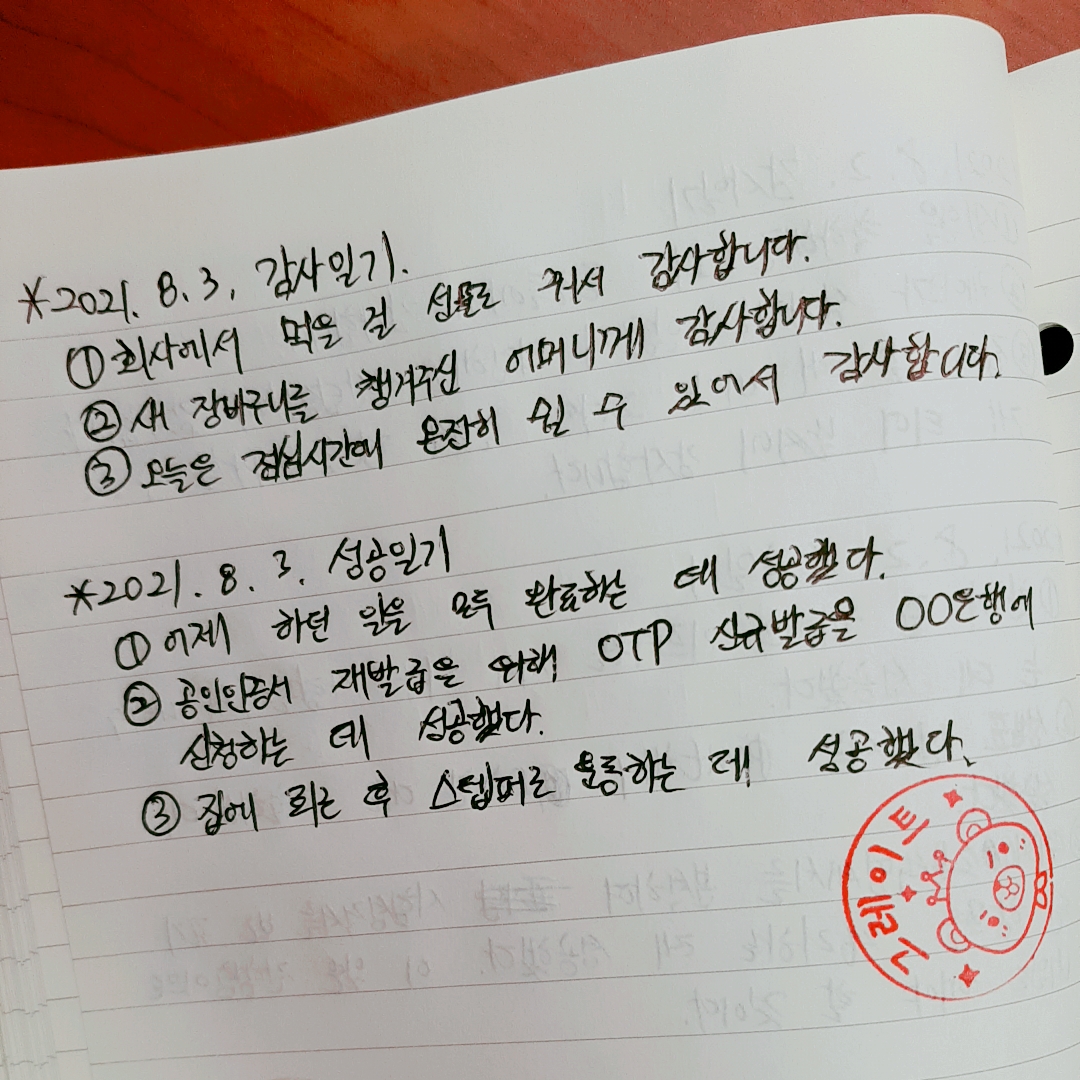 *2021. 8. 3. 감사일기.
① 회사에서 먹을 걸 선물로 줘서 감사합니다.
② 새 장바구니를 챙겨주신 어머니께 감사합니다.
③ 오늘은 점심시간에 온전히 쉴 수 있어서 감사합니다.
*2021. 8. 3. 성공일기
① 어제 하던 일을 모두 완료하는 데 성공했다.
② 공인인증서 재발급을 위해 OTP 신규발급을 OO은행에
신청하는 데 성공했다.
③ 집에 퇴근 후 스텝퍼로 운동하는 데 성공했다.
그레이트